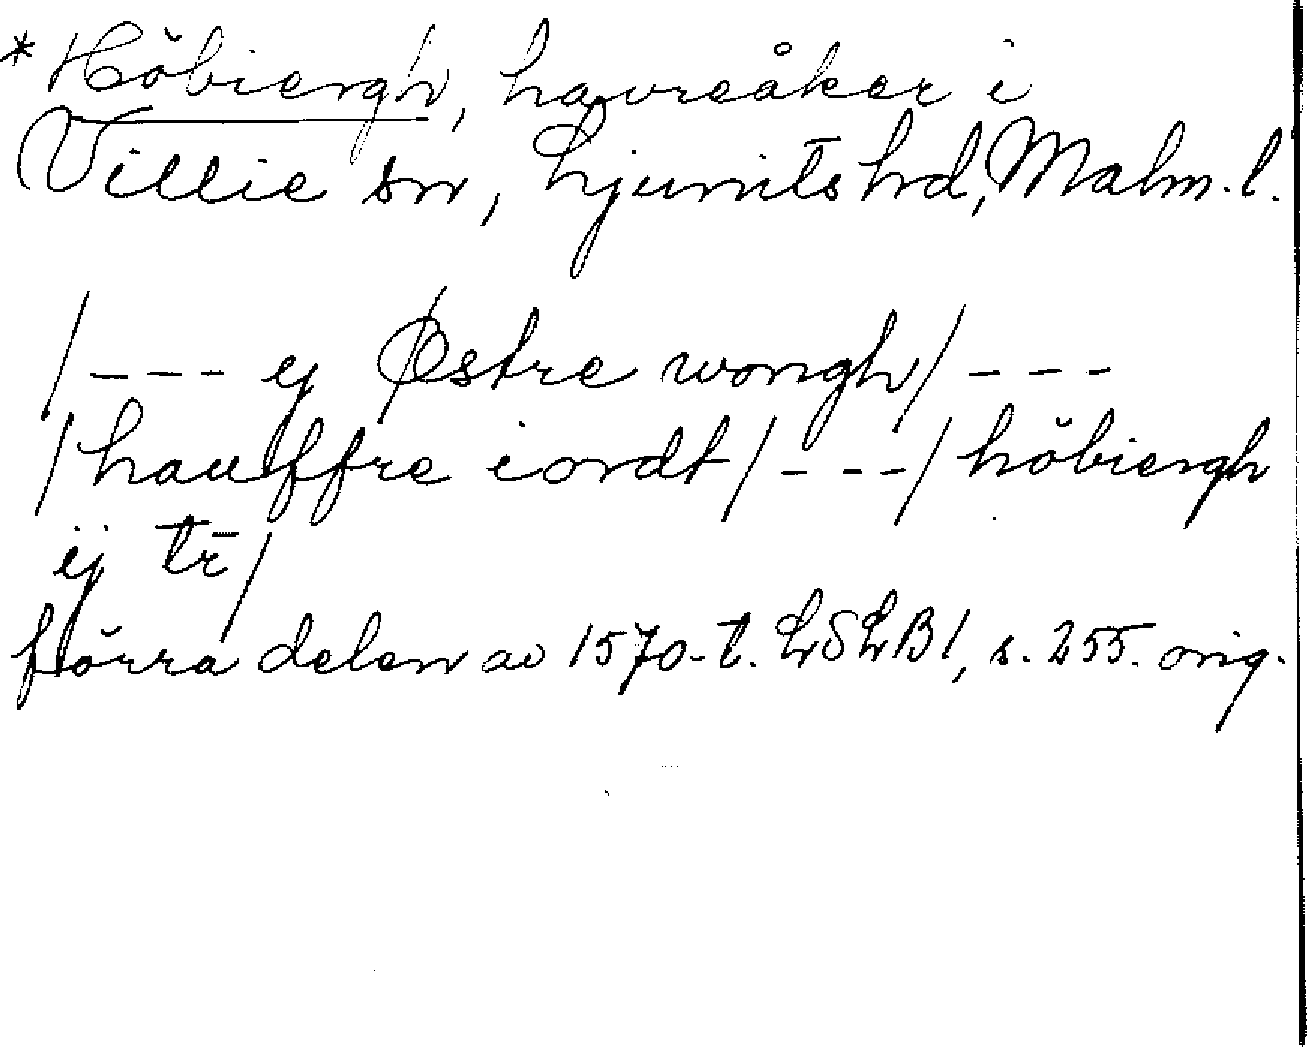 *Höbiergh, havreåker i
Villie sn, Ljunits hd, Malm. l.
/--- ej Østre wongh/ ---
/hauffre iordt/---/höbiergh
ij tr̄/
förra delen av 1570-t. LSLB1, s. 255. orig.